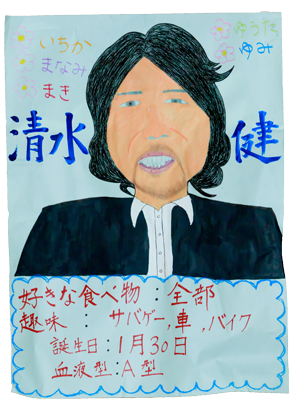 いちか
まなみ
まき
ゆうた
ゆみ
清水 健
好きな食べ物：全部
趣味：サバゲー,車,バイク
誕生日：1月30日
血液型：A型